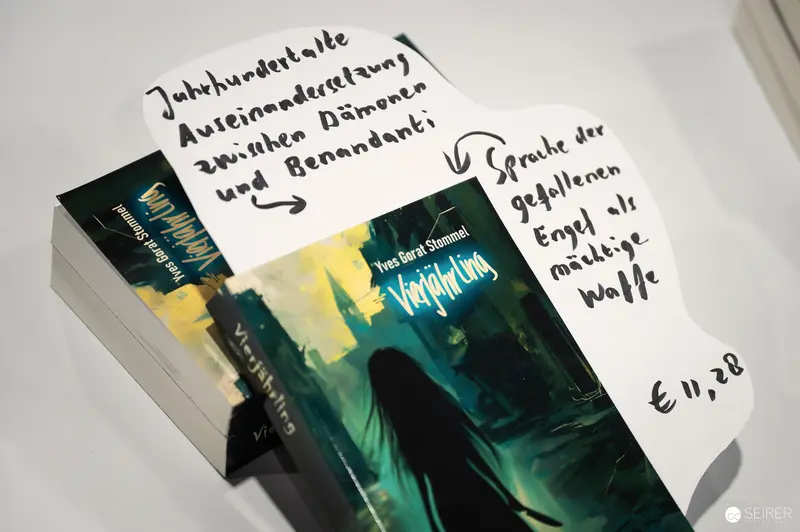 Jahrhundertalte
Auseinandersetzung
zwischen Dämonen
und Benandanti
Sprache der
gefallenen
Engel als
mächtige
Waffe
€ 11,28
Yves Gorat Stommel
Vierjährling
Vierjährling
Yves Gorat Stommel
Vierjährling
SEIRER